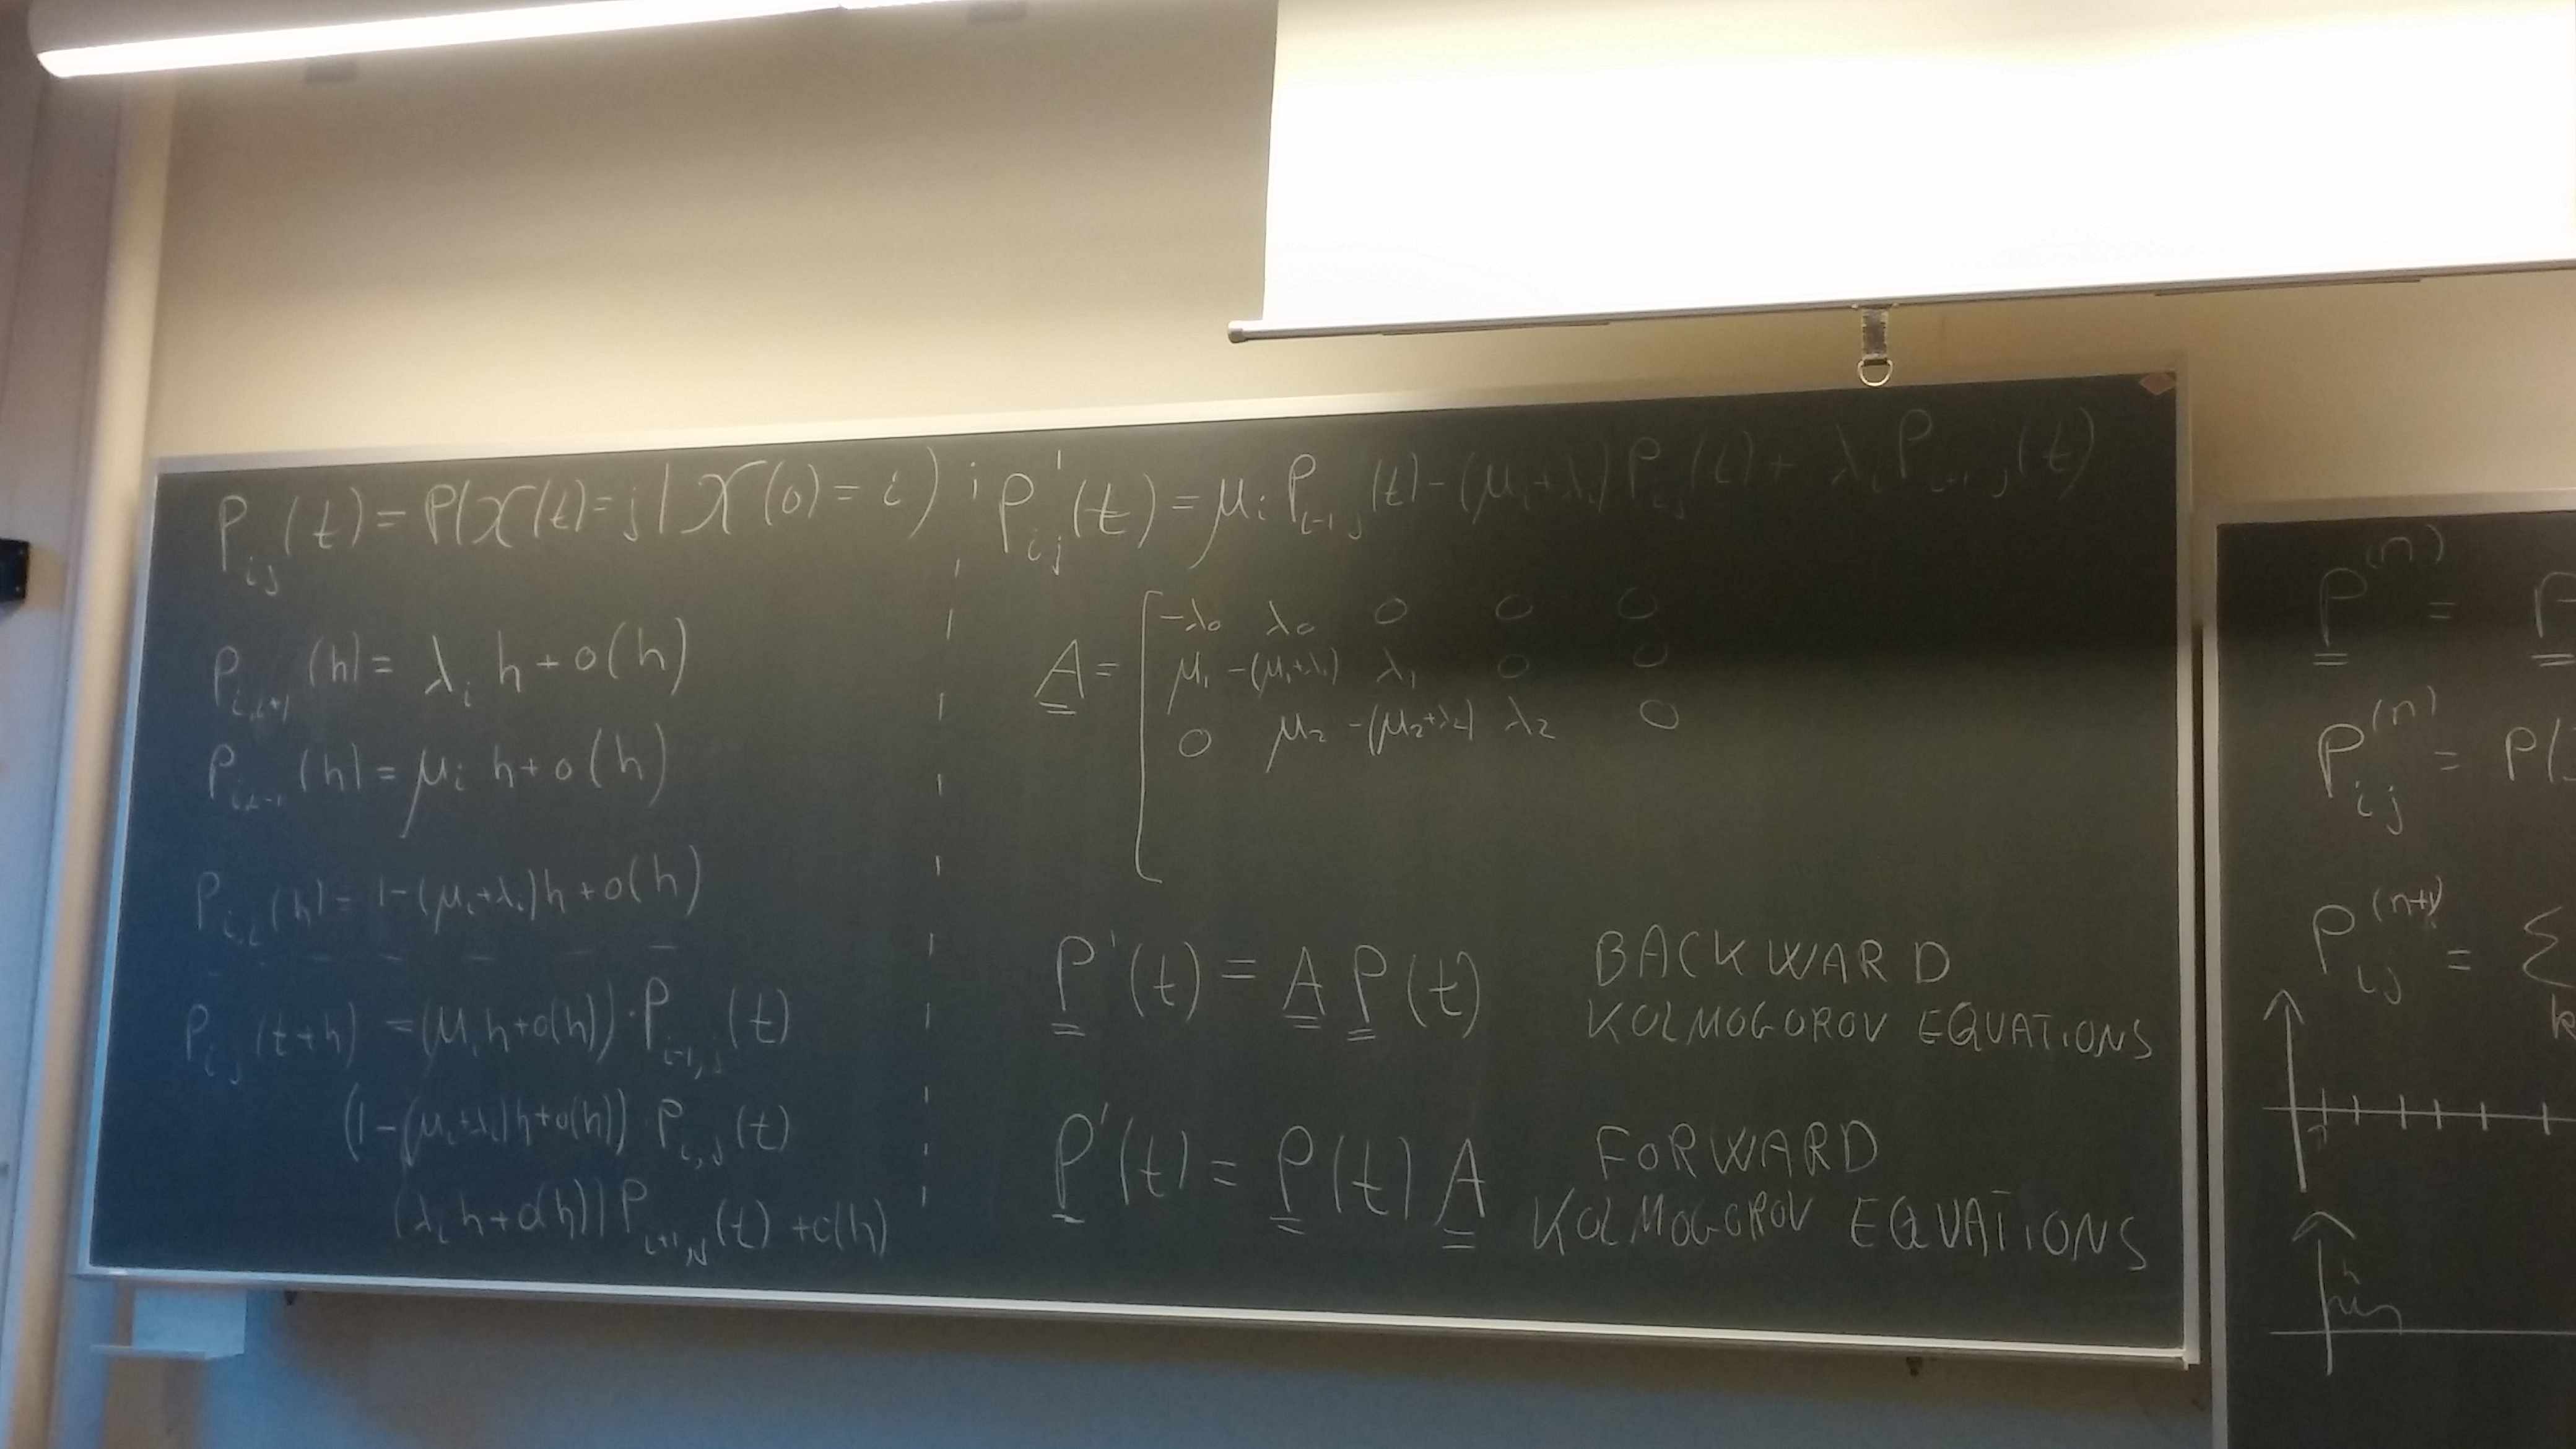 P_{ij}(t) = P(X(t)=j | X(0)=i)
P_{i,i+1}(h) = λ_i h + o(h)
P_{i,i-1}(h) = μ_i h + o(h)
P_{i,i}(h) = 1-(μ_i+λ_i)h + o(h)
P_{ij}(t+h) = (μ_i h+o(h))·P_{i-1,j}(t)
(1-(μ_i+λ_i)h+o(h))·P_{i,j}(t)
(λ_i h+o(h))P_{i+1,j}(t) + o(h)
P'_{ij}(t) = μ_i P_{i-1,j}(t) - (μ_i+λ_i)P_{ij}(t) + λ_i P_{i+1,j}(t)
-λ_0 λ_0 0 0 0
A = [ μ_1 -(μ_1+λ_1) λ_1 0 0
0 μ_2 -(μ_2+λ_2) λ_2 0
P'(t) = A P(t) BACKWARD
KOLMOGOROV EQUATIONS
P'(t) = P(t) A FORWARD
KOLMOGOROV EQUATIONS
P^{(n)} = P
P_{ij}^{(n)} = P(
P_{ij}^{(n+1)} = Σ
k